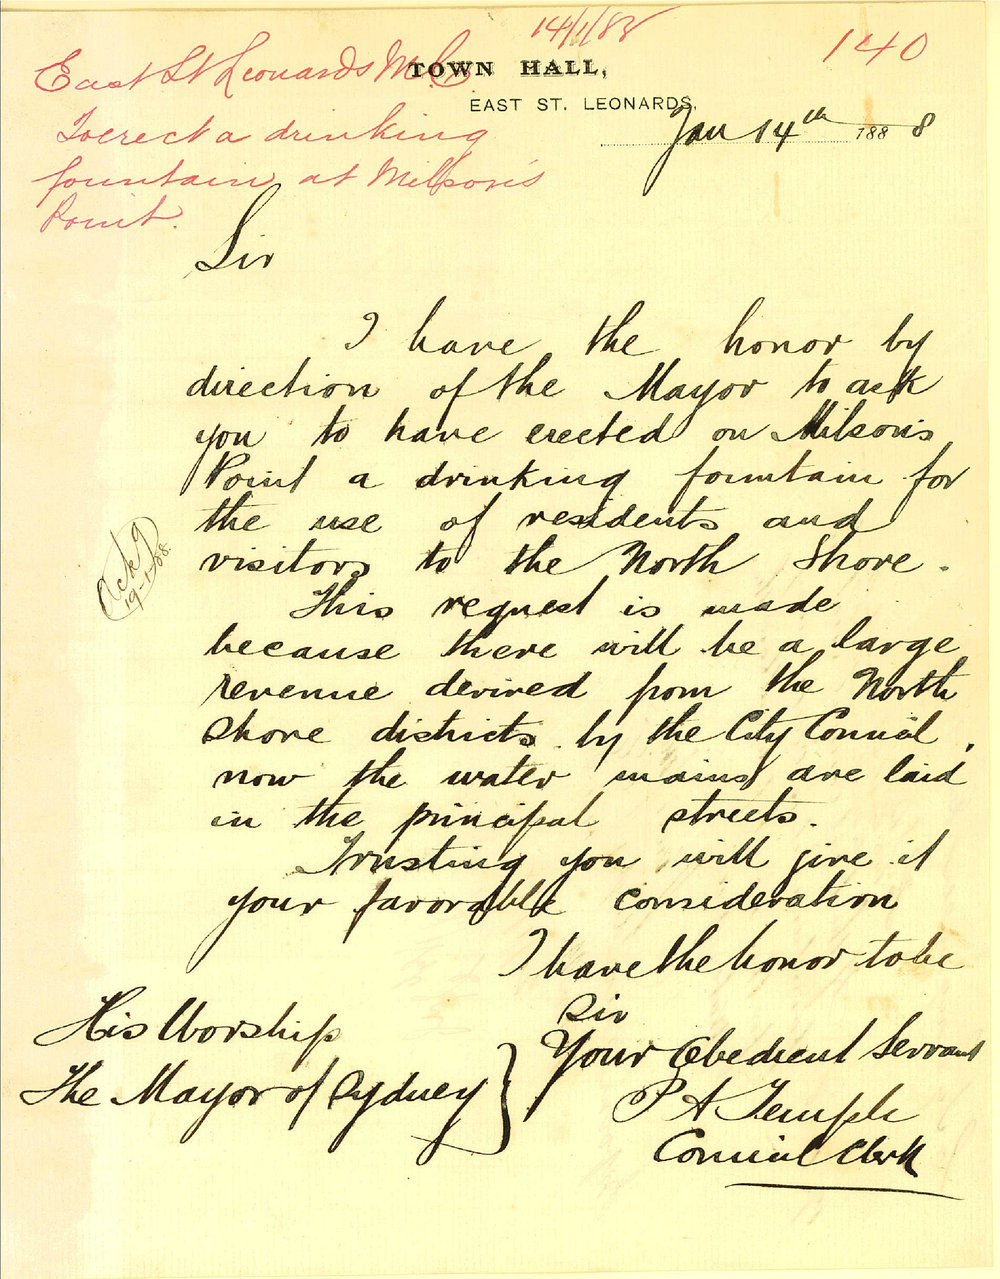 14/1/88
140
East St Leonards M. C.
TOWN HALL,
EAST ST. LEONARDS,
Jan 14th 1888
To erect a drinking
fountain at Milson's
Point.
Sir
I have the honor by
direction of the Mayor to ask
you to have erected on Milson's
Point a drinking fountain for
the use of residents and
visitors to the North Shore.
This request is made
because there will be a large
revenue derived from the North
Shore districts by the City Council,
now the water mains are laid
in the principal streets.
Trusting you will give it
your favorable consideration
I have the honor to be
Sir
Your Obedient Servant
P A Temple
Council Clerk
His Worship
The Mayor of Sydney
Ackd
19-1-88.